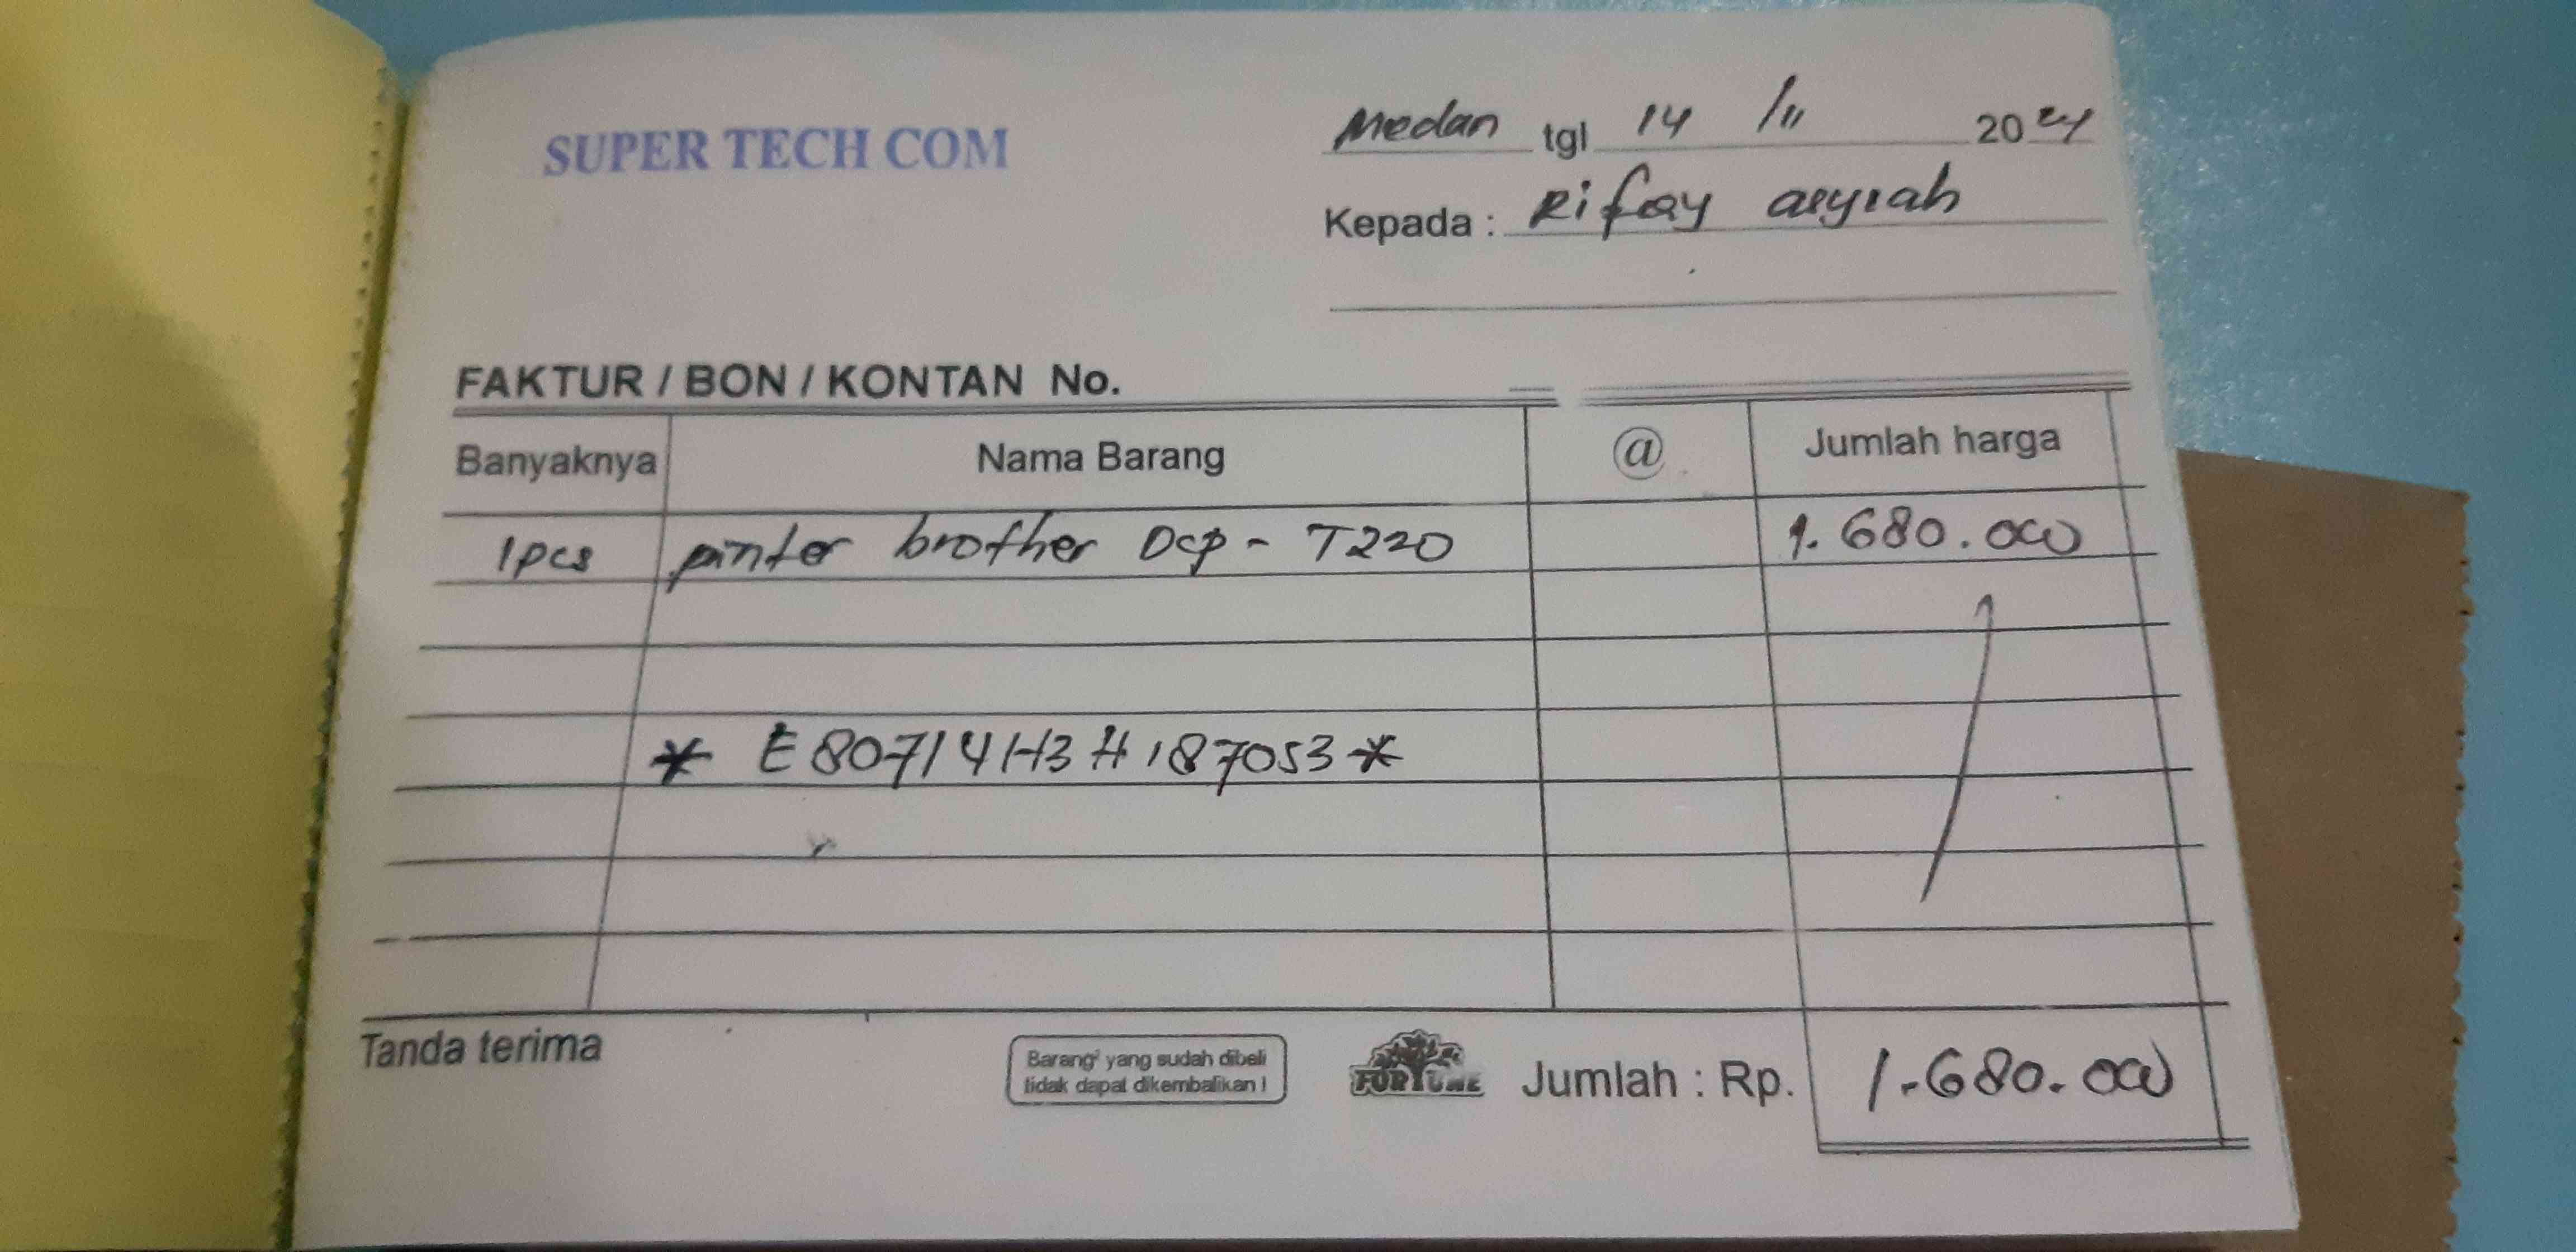 SUPER TECH COM
Medan tgl 14 /11 2024
Kepada : Rifay asyrah
FAKTUR / BON / KONTAN No.
Banyaknya Nama Barang @ Jumlah harga
1pcs printer brother Dcp - T220 1.680.000
* E80714H3H187053 *
Tanda terima
Barang² yang sudah dibeli
tidak dapat dikembalikan !
FORTUNE
Jumlah : Rp. 1.680.000